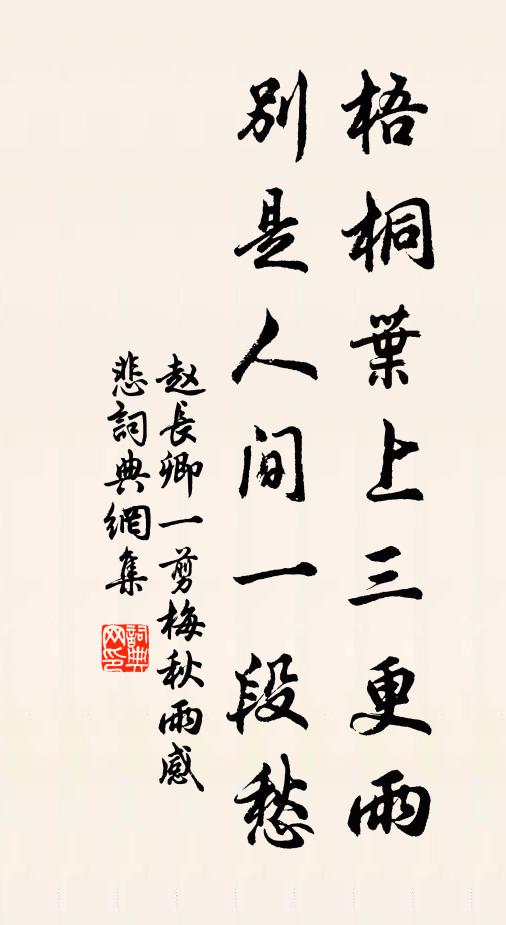 梧桐葉上三更雨
别是人间一段愁
赵長卿一剪梅秋雨感
悲詞典網集
詞典